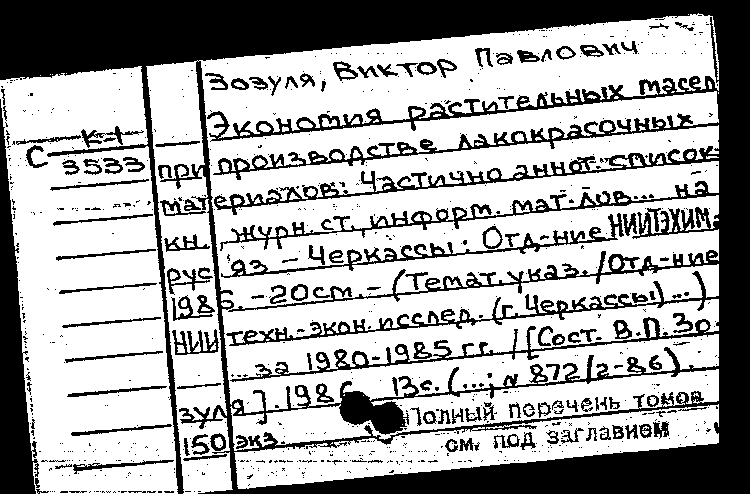 Зозуля, Виктор Павлович
Экономия растительных масел
С К-1
3533
при производстве лакокрасочных
материалов: Частично аннот. список
кн., журн. ст., информ. мат-лов... на
рус. яз. – Черкассы: Отд-ние НИИТЭХИМа
1986. – 20см. – (Темат. указ. / Отд-ние
НИИ техн.-экон. исслед. (г. Черкассы)...)
...за 1980-1985 гг. / [Сост. В.П. Зо-
зуля]. 1986 13с. (...; № 872/2-86).
150 экз.
Полный перечень томов
см. под заглавием